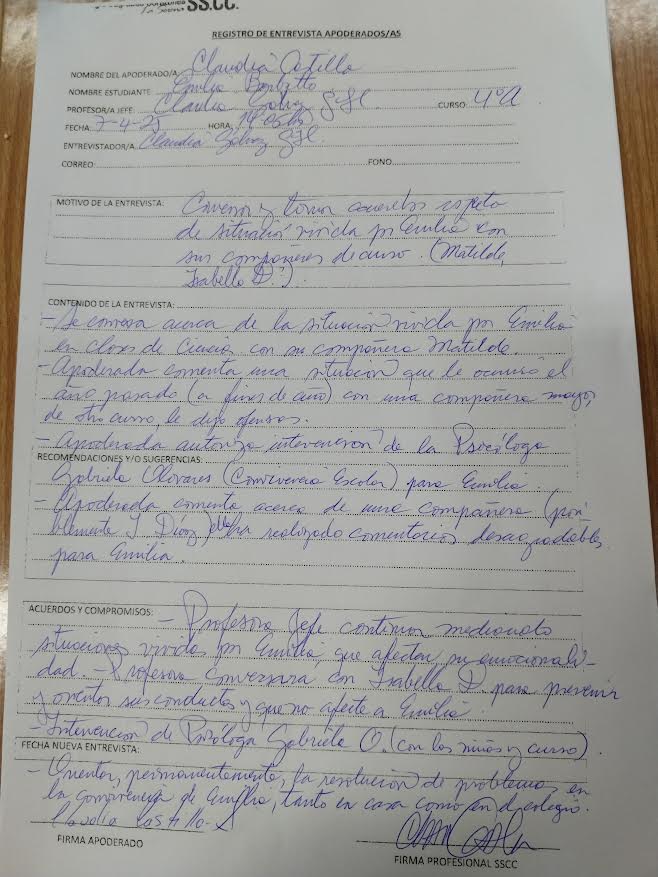 SS.CC.
REGISTRO DE ENTREVISTA APODERADOS/AS
NOMBRE DEL APODERADO/A: Claudia Castillo
NOMBRE ESTUDIANTE Emilia
PROFESOR/A JEFE: Claudia Gálvez CURSO 4°A
FECHA: 7-4-25 HORA:
ENTREVISTADOR/A Claudia Gálvez
CORREO: FONO
MOTIVO DE LA ENTREVISTA: Conversar y tomar acuerdos respecto
de situación vivida por Emilia con
sus compañeras de curso. (Matilde,
Isabella D.).
CONTENIDO DE LA ENTREVISTA:
- Se conversa acerca de la situación vivida por Emilia
en clases de Ciencia con su compañera Matilde.
- Apoderada comenta una situación que le ocurrió el
año pasado (a fines de año) con una compañera mayor,
de otro curso, le dijo ofensas.
- Apoderada autoriza intervención de la Psicóloga
RECOMENDACIONES Y/O SUGERENCIAS:
Gabriela Olivares (Convivencia Escolar) para Emilia.
- Apoderada comenta acerca de una compañera (posi-
blemente I. Díaz) ella ha realizado comentarios desagradables
para Emilia.
ACUERDOS Y COMPROMISOS: - Profesora Jefe continua mediando
situaciones vividas por Emilia, que afectan su emocionali-
dad. - Profesora conversará con Isabella D. para prevenir
y orientar sus conductas y que no afecte a Emilia.
- Intervención de Psicóloga Gabriela O. (con los niños y curso).
FECHA NUEVA ENTREVISTA:
- Orientar, permanentemente, la resolución de problemas, en
la convivencia de Emilia, tanto en casa como en el colegio.
Claudia Castillo
FIRMA APODERADO
FIRMA PROFESIONAL SSCC